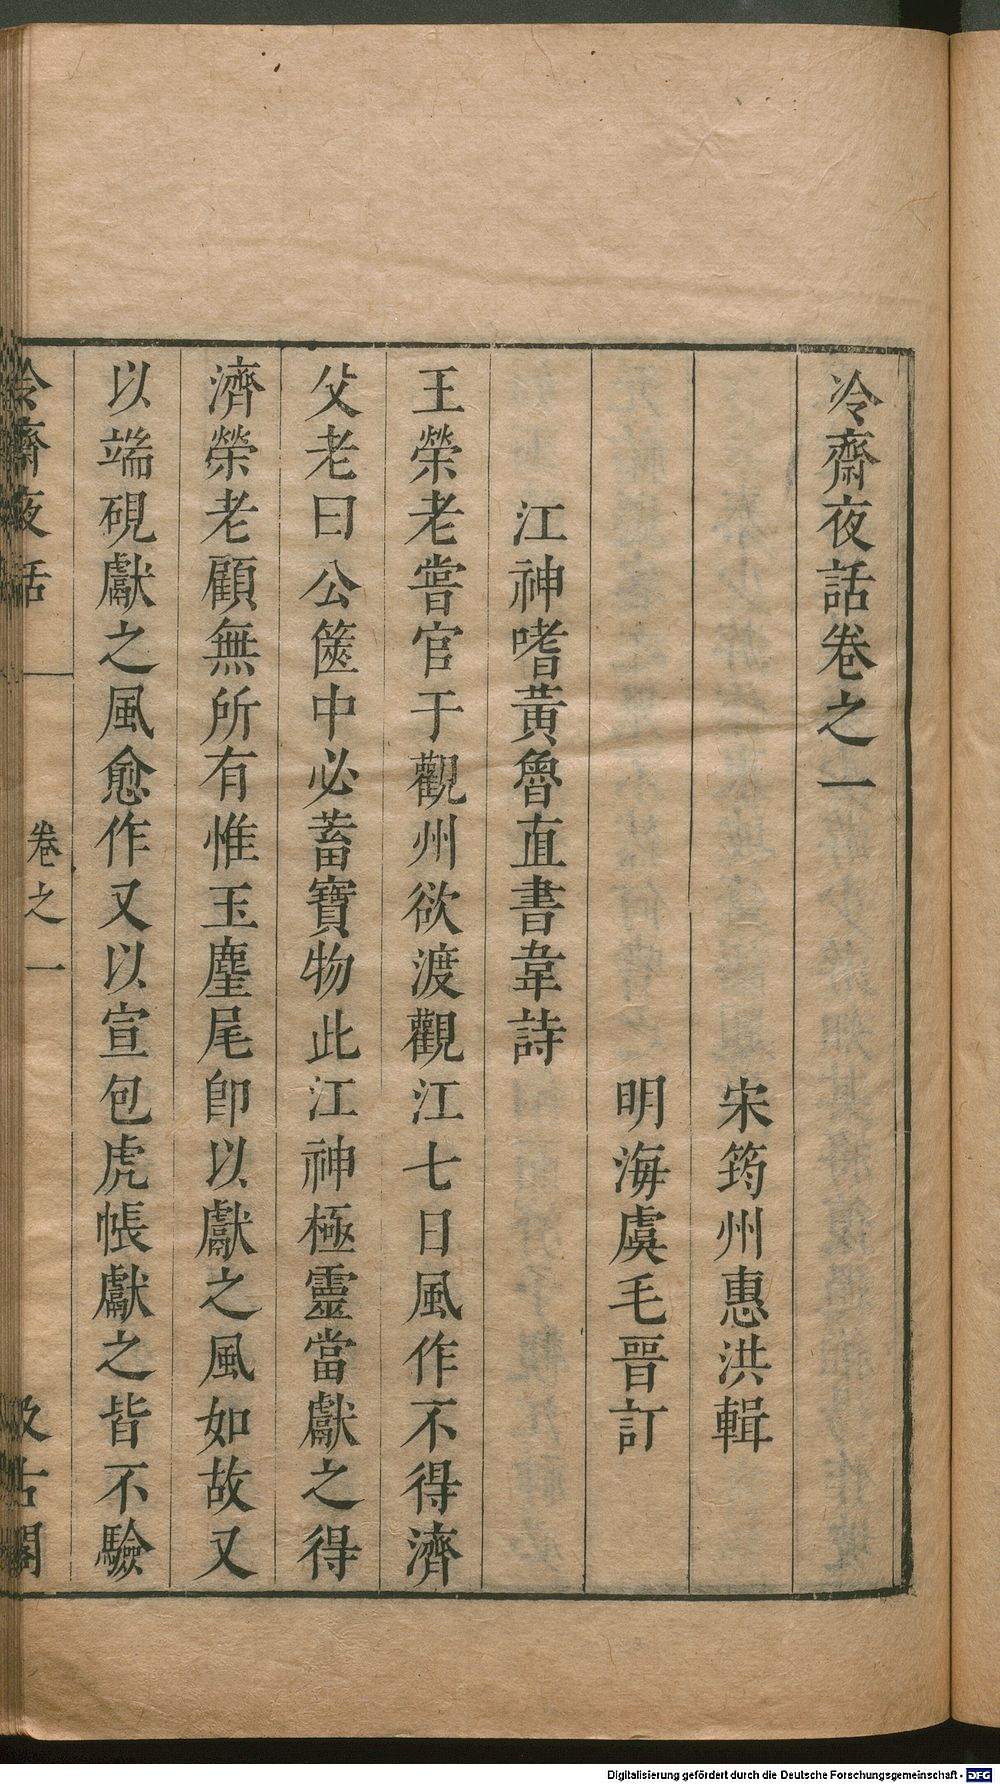 冷齋夜話卷之一
宋筠州惠洪輯
明海虞毛晉訂
江神嗜黃魯直書韋詩
王榮老嘗官于觀州欲渡觀江七日風作不得濟
父老曰公篋中必蓄寶物此江神極靈當獻之得
濟榮老顧無所有惟玉麈尾卽以獻之風如故又
以端硯獻之風愈作又以宣包虎帳獻之皆不驗
冷齋夜話 卷之一 汲古閣
Digitalisierung gefördert durch die Deutsche Forschungsgemeinschaft - DFG